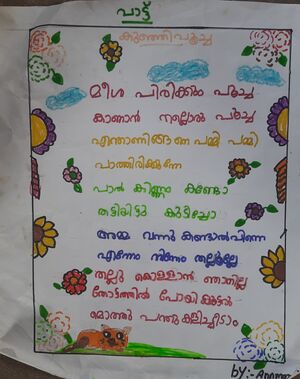 പാട്ട്
കുഞ്ഞിപൂച്ച
മീശ പിരിക്കും പൂച്ച
കാണാൻ നല്ലൊരു പൂച്ച
എന്താണിങ്ങനെ പമ്മി പമ്മി
പാത്തിരിക്കുന്നേ
പാൽ കിണ്ണം കണ്ടോ
തട്ടിയിട്ടു കുടിച്ചോ
അമ്മ വന്നു കണ്ടാൽപിന്നെ
എന്നേം നിന്നേം തല്ലൂല്ലേ
തല്ലു കൊള്ളാൻ ഞാനില്ല
തോട്ടത്തിൽ പോയി
മൊത്തു പന്തു കളിച്ചീടാം
by:-